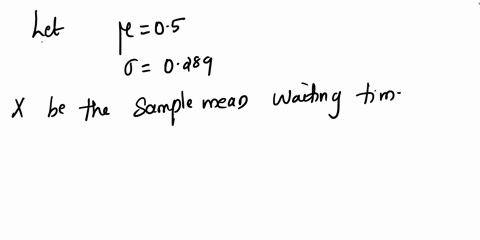 Let μ = 0.5
σ = 0.289
X be the Sample mean Waiting tim-